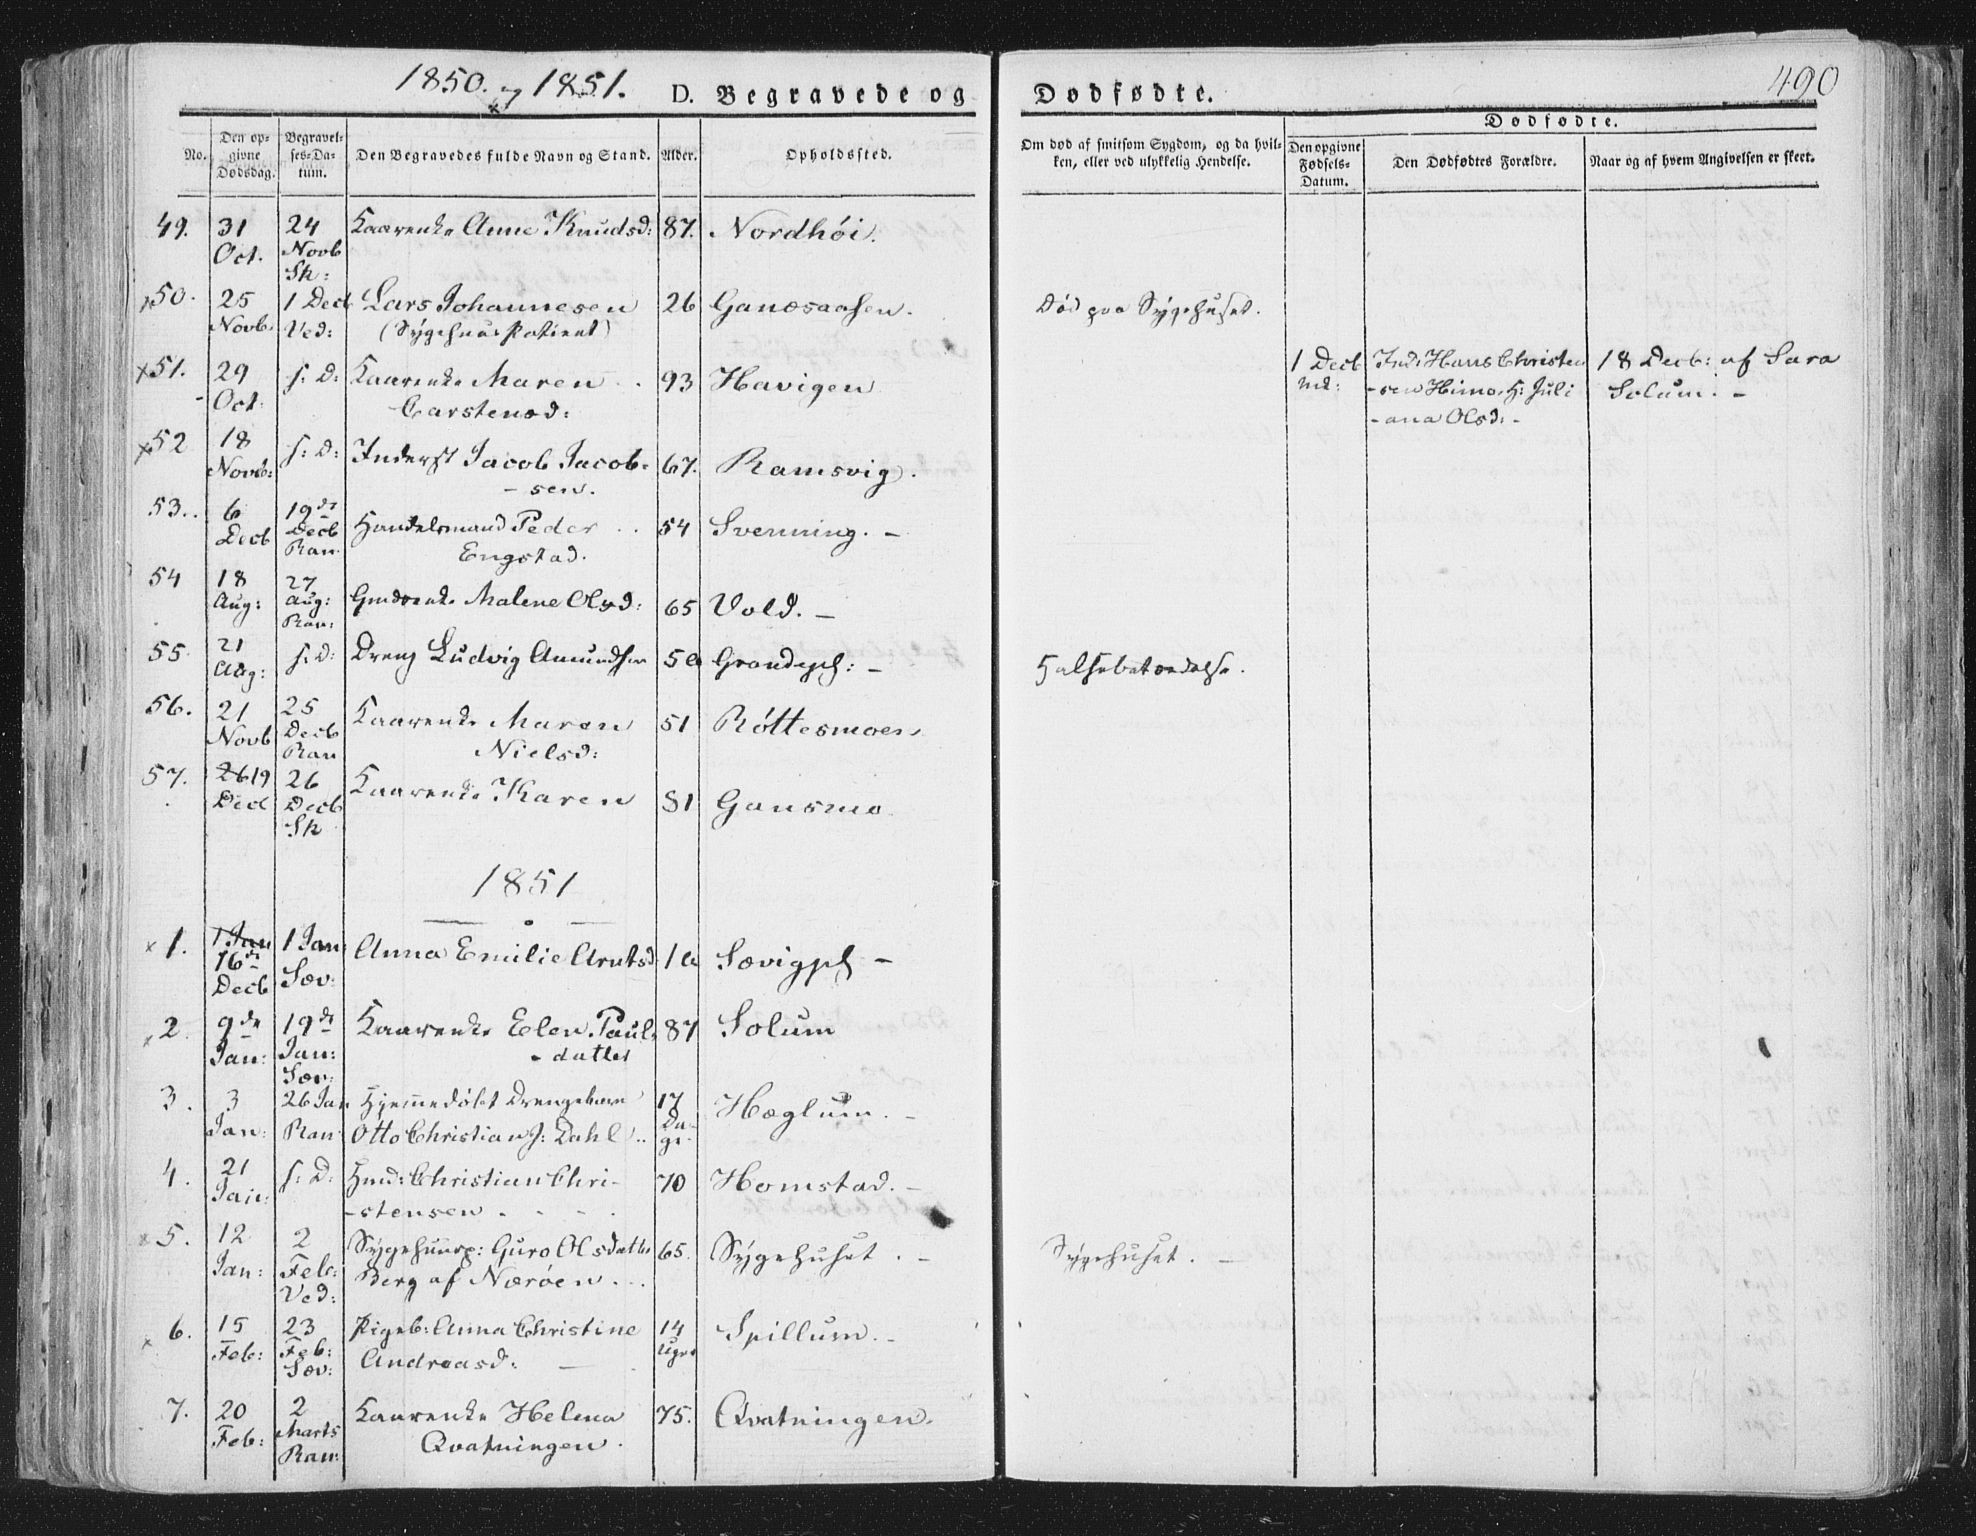 1850. og 1851. D. Begravede og Dødfødte. 490
No. Den opgivne Dødsdag. Begravelses-Datum. Den Begravedes fulde Navn og Stand. Alder. Opholdssted. Om død af smitsom Sygdom, og da hvilken, eller ved ulykkelig Hendelse. Dødfødte. Den opgivne Fødsels-Datum. Den Dødfødtes Forældre. Naar og af hvem Angivelsen er skeet.
49. 31 Oct. 24 Novb Sk: Kaarenke Anne Knudsd: 87. Nordhöi.
50. 25 Novb. 1 Decb Ved: Lars Johannesen 26 Ganesaasen. Död paa Sygehuset.
(Sygehuus Patient)
51. 29 Oct. s: D: Kaarenke Maren 93 Havigen
Carstensd:
1 Decb Ind: Hans Christen 18 Decb: af Sara
-sen Himo, H: Juli Solum. -
-ana Olsd: -
52 18 Novb: s: D: Inderst Jacob Jacob- 67. Ramsvig.
-sen.
53. 6 Decb 19de Decb Ran Handelsmand Peder 54 Svenning. -
Engstad.
54 18 Aug: 27 Aug: Ran: Malene Olsd: 65 Vold. -
55 21 Aug: s: D: Dreng Ludvig Amundsen 5 a Grandepl: - Halsebetændelse.
56. 21 Novb 25 Decb Ran Kaarenke Maren 51 Röttesmoen
Nielsd:
57. 26 19 Decb 26 Decb Sk Kaarenke Karen 81 Gansmo
1851
1. 1 Jan 16de Decb 1 Jan: Sæv: Anna Emilie Arntsd 1 a Sævigpl -
2. 9de Jan: 19de Jan: Sæv: Kaarenke Elen Pauls 87 Solum
-datter
3. 3 Jan: 26 Jan Ran Hjemmedöbt Drengebarn 17 Dage Hæglum. -
Otto Christian J: Dahl
4. 21 Jan: s: D: Hmd: Christian Chri- 70 Homstad. -
-stensen
5. 12 Jan: 2 Feb: Ved: Sygehuusp: Guro Olsdatter 65. Sygehuset. - Sygehuset. -
Berg af Næröen
6. 15 Feb: 23 Feb: Sæv: Pigeb: Anna Christine 14 Uger Spillum. -
Andreasd:
7. 20 Feb: 2 Marts Ran: Kaarenke Helena 75. Qvatningen.
Qvatningen.